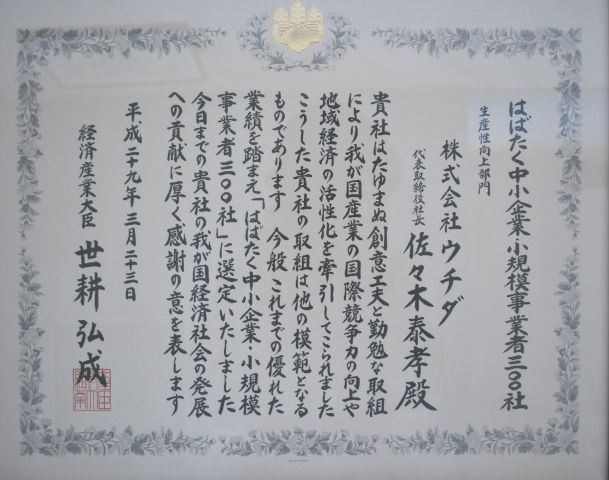 はばたく中小企業・小規模事業者三〇〇社
生産性向上部門
株式会社ウチダ
代表取締役社長 佐々木泰孝殿
貴社はたゆまぬ創意工夫と勤勉な取組
により我が国産業の国際競争力の向上や
地域経済の活性化を牽引してこられました
こうした貴社の取組は他の模範となる
ものであります 今般 これまでの優れた
業績を踏まえ「はばたく中小企業・小規模
事業者三〇〇社」に選定いたしました
今日までの貴社の我が国経済社会の発展
への貢献に厚く感謝の意を表します
平成二十九年三月二十三日
経済産業大臣 世耕弘成